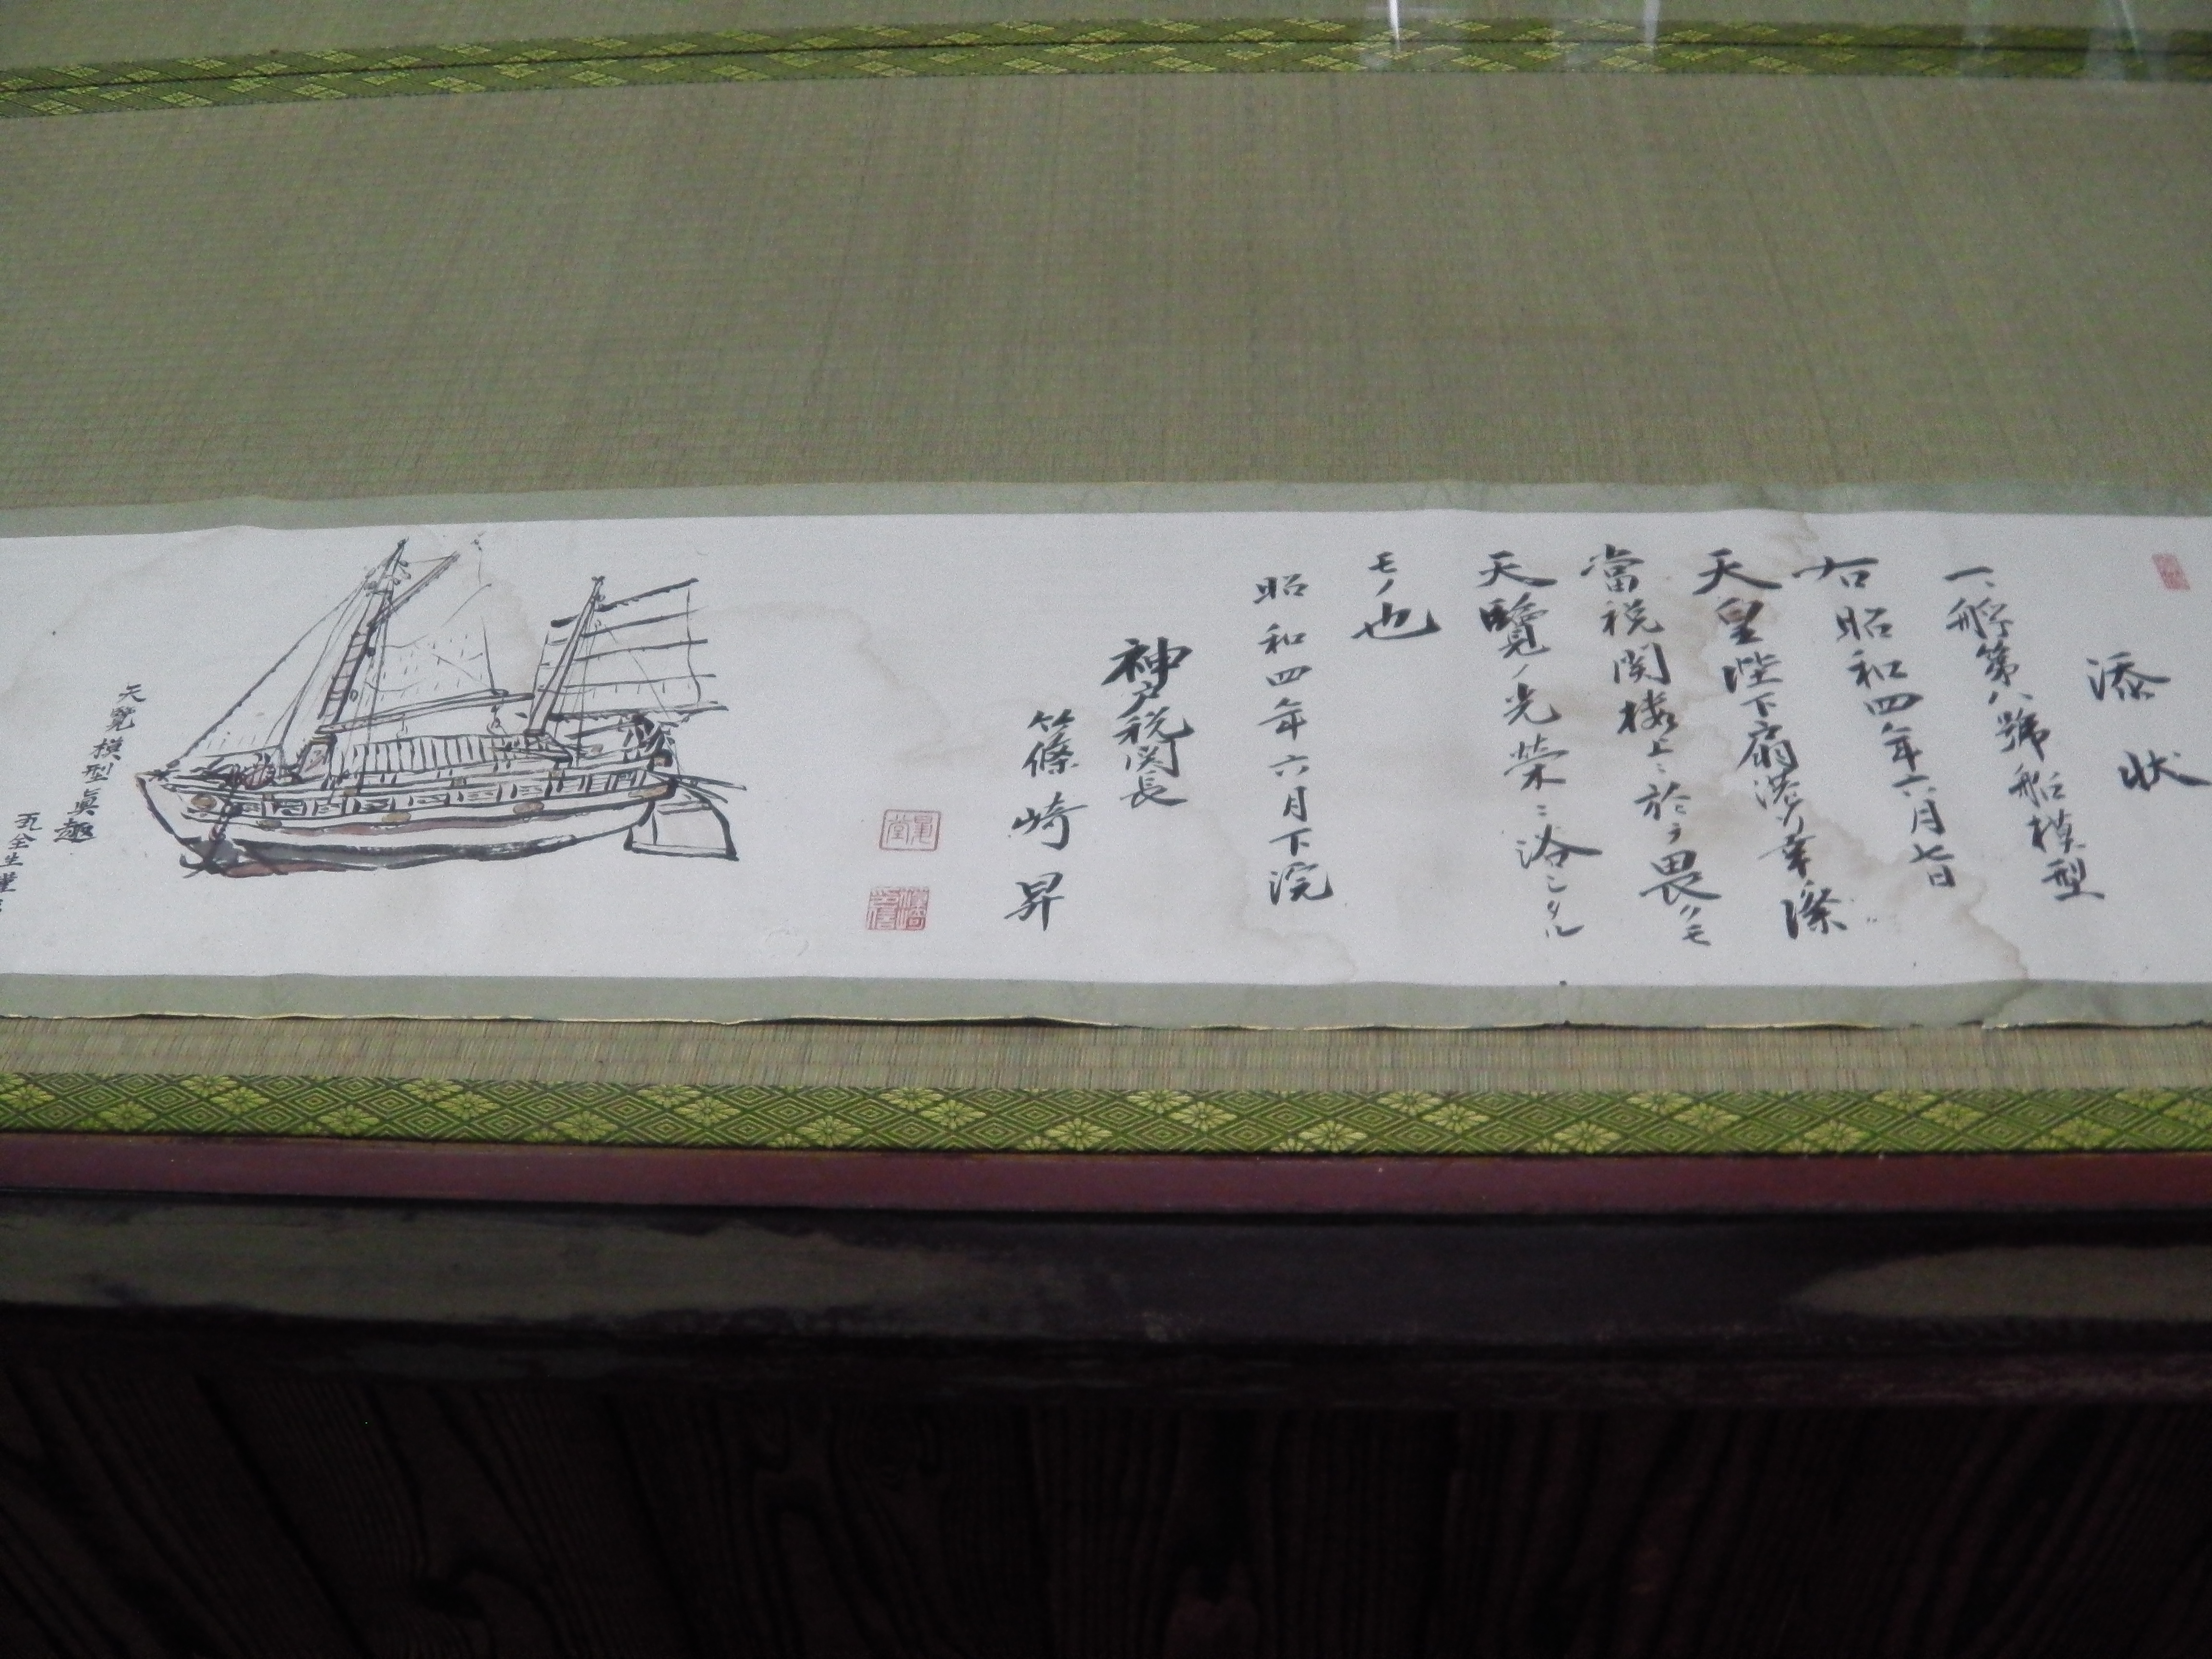 添状
一、艀第八號船模型
右昭和四年六月七日
天皇陛下扇港行幸際
當税関楼上ニ於テ畏クモ
天覽ノ光栄ニ浴シタル
モノ也
昭和四年六月下浣
神戸税関長
篠崎昇
天覽模型真趣